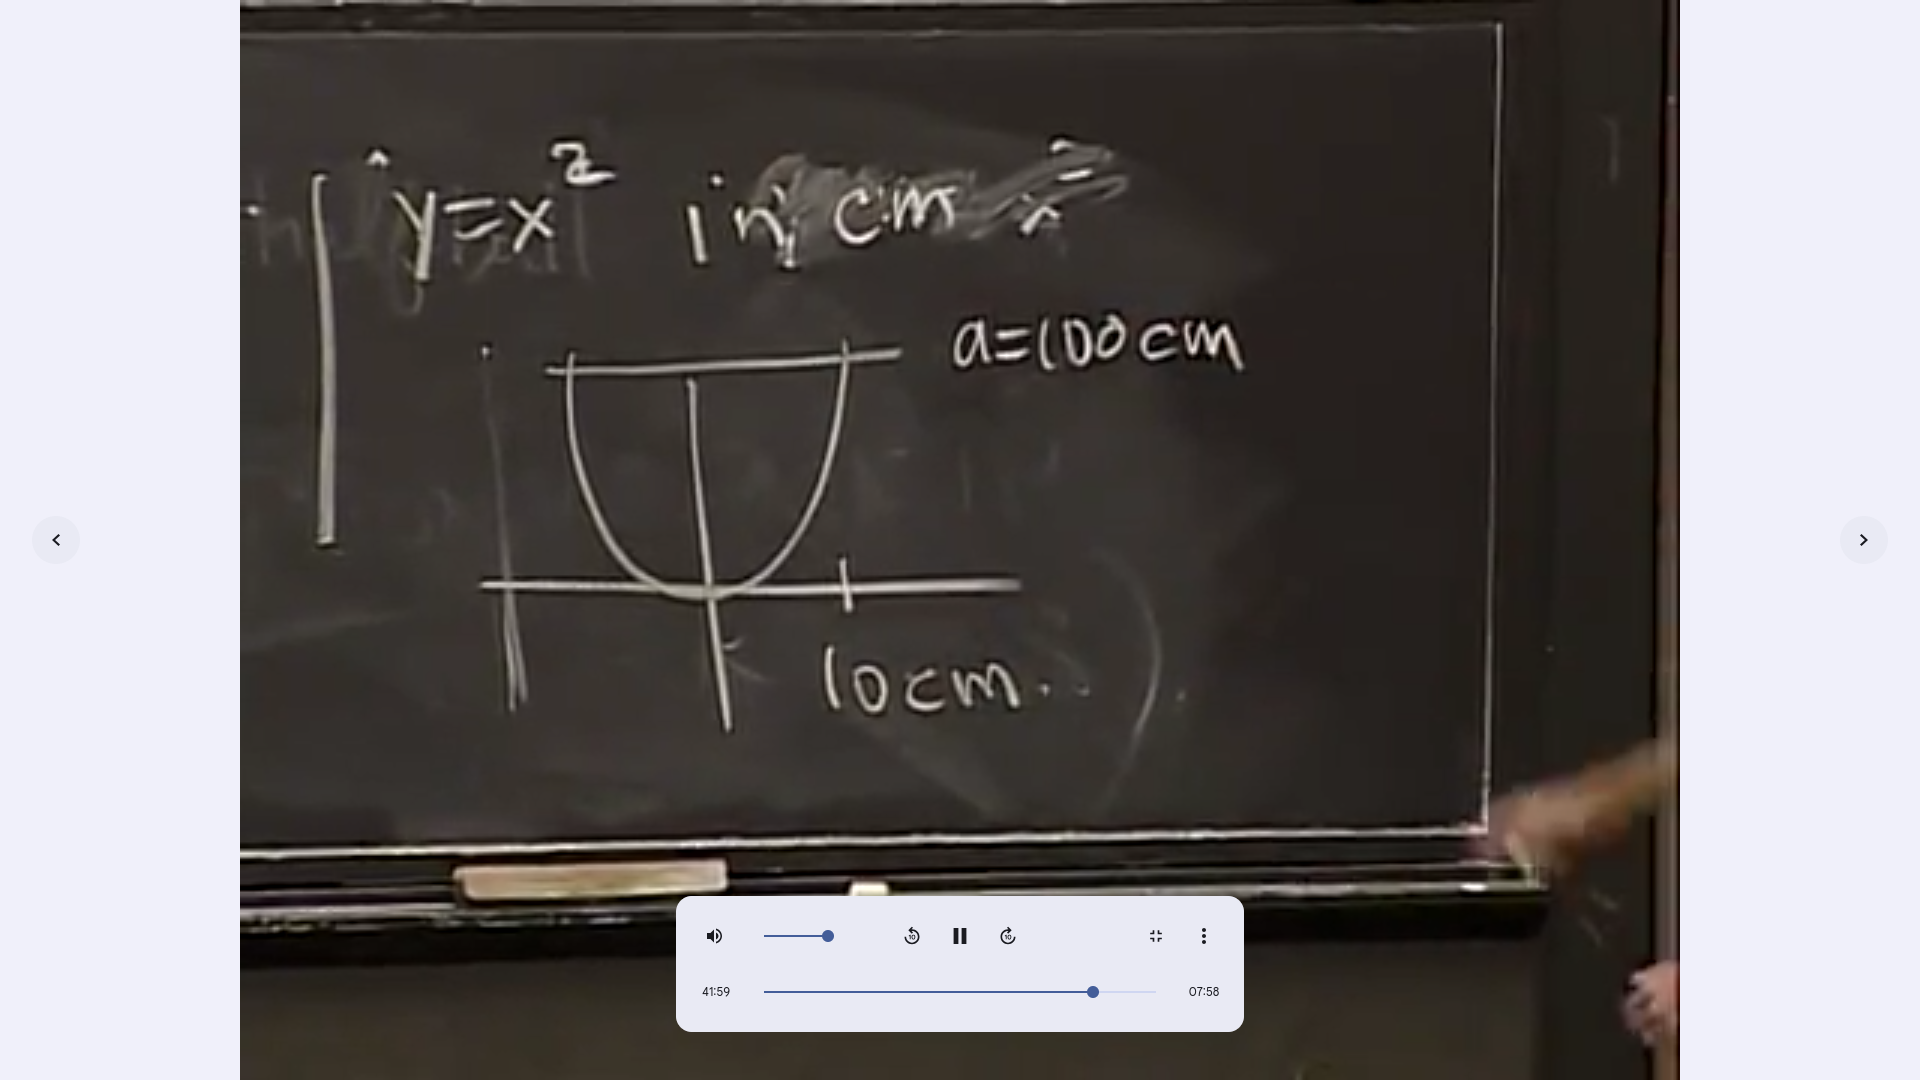 y=x² in cm
a=100cm
10cm.
41:59
07:58